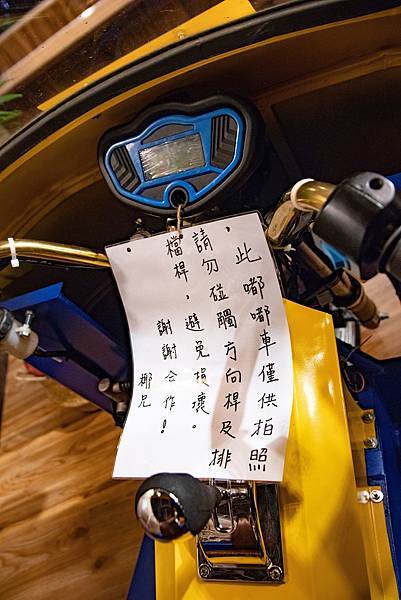 ，此嘟嘟車僅供拍照
請勿碰觸方向桿及排
檔桿，避免損壞。
謝謝合作！
椰兄